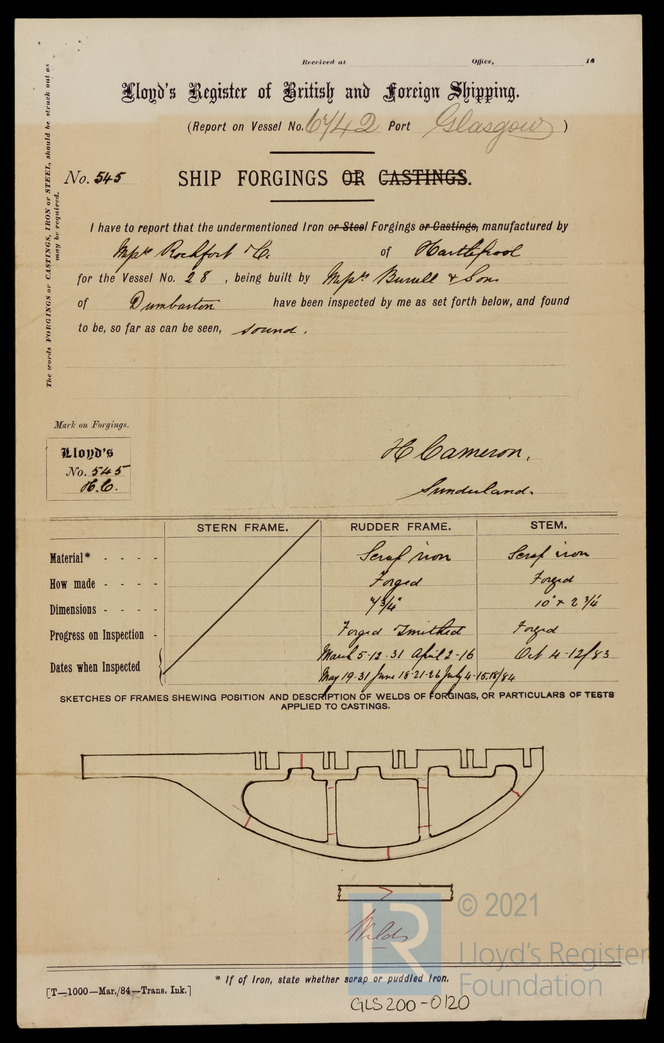 Received at Office, 18
Lloyd's Register of British and Foreign Shipping.
(Report on Vessel No. 6742 Port Glasgow)
No. 545 SHIP FORGINGS OR CASTINGS.
The words FORGINGS or CASTINGS, IRON or STEEL, should be struck out as
may be required.
I have to report that the undermentioned Iron or Steel Forgings or Castings, manufactured by
Rochfort & C. of Hartlepool
for the Vessel No. 28, being built by Burrell & Son
of Dumbarton have been inspected by me as set forth below, and found
to be, so far as can be seen, sound.
Mark on Forgings.
Lloyd's
No. 545
H.C.
H Cameron,
Sunderland.
STERN FRAME. RUDDER FRAME. STEM.
Material* - - - - Scrap iron Scrap iron
How made - - - - Forged Forged
Dimensions - - - - 10" x 2 3/4"
Progress on Inspection - Forged Smithed Forged
Dates when Inspected March 5-12-31 April 2-16 Oct 4-12/83
May 19-31 June 18-21-26 July 4-15-18/84
SKETCHES OF FRAMES SHEWING POSITION AND DESCRIPTION OF WELDS OF FORGINGS, OR PARTICULARS OF TESTS
APPLIED TO CASTINGS.
Welds
© 2021
LR
Lloyd's Register
Foundation
* If of Iron, state whether scrap or puddled Iron.
[T—1000—Mar./84—Trans. Ink.]
GLS200-0120